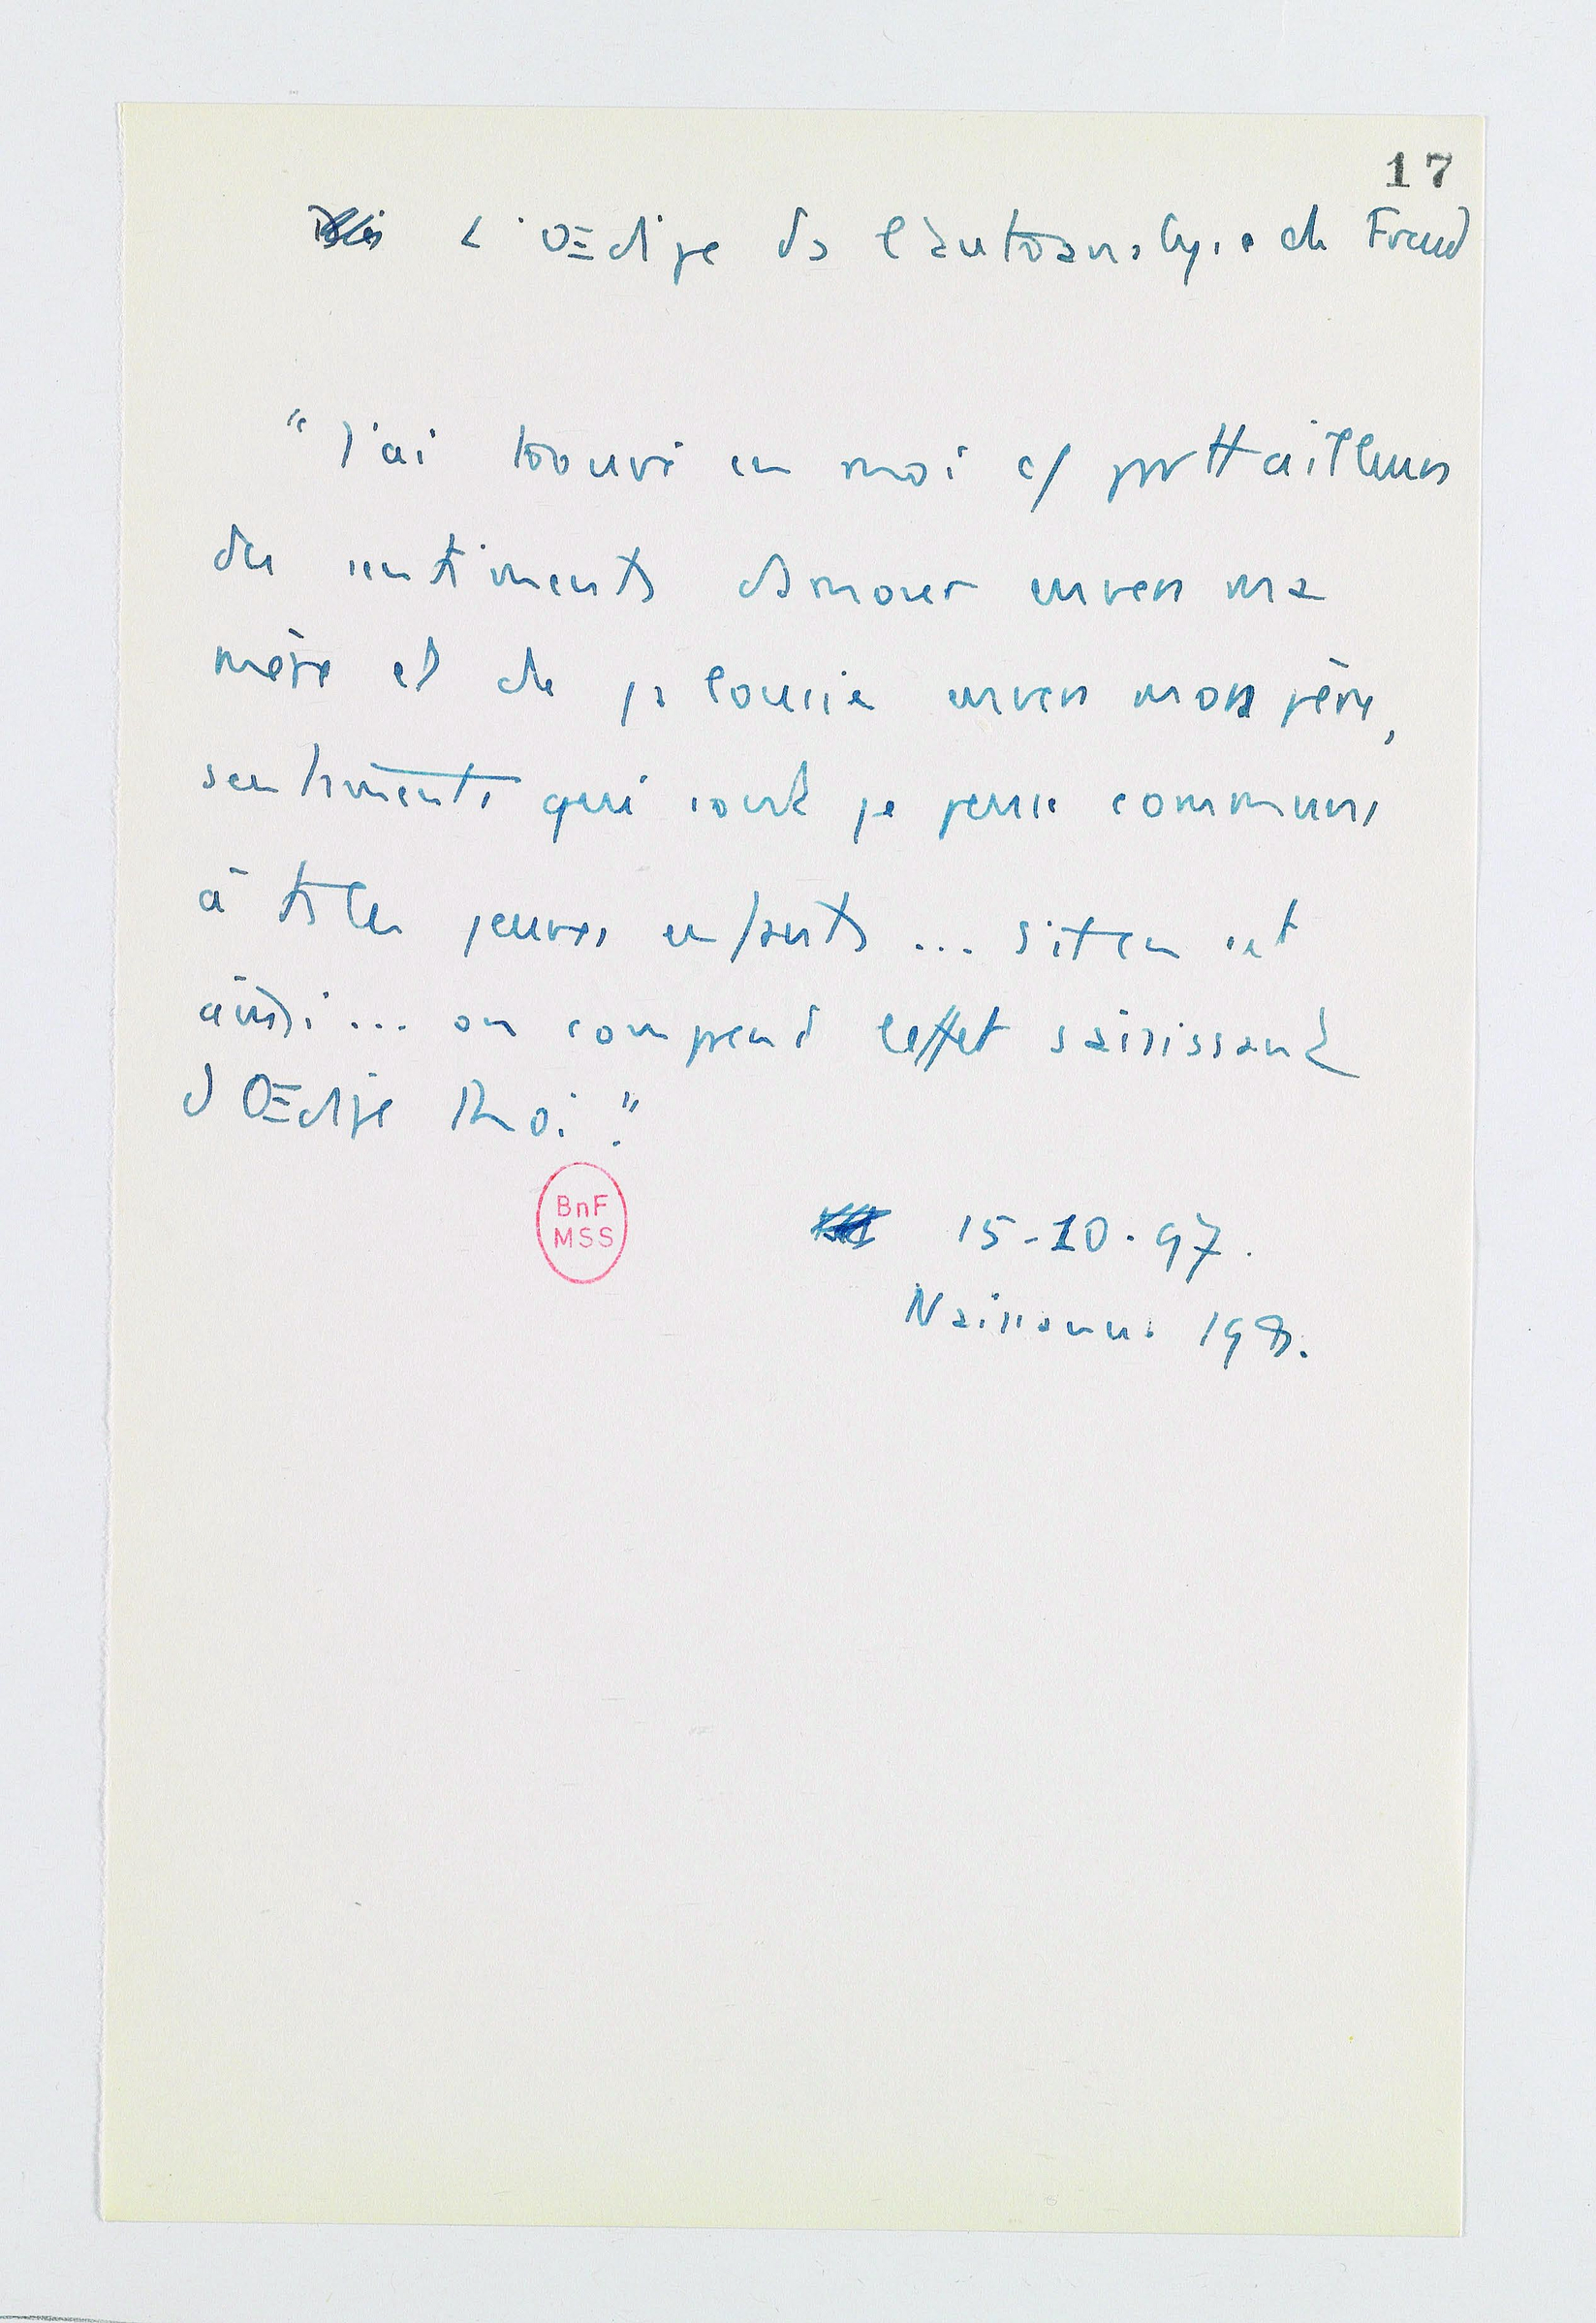 17
L'Œdipe ds l'autoanalyse de Freud
"J'ai trouvé en moi c/ partt ailleurs
des sentiments d'amour envers ma
mère et de jalousie envers mon père,
sentiments qui sont je pense communs
à ts les jeunes enfants ... s'il en est
ainsi ... on comprend l'effet saisissant
d'Œdipe Roi."
BnF
MSS
15-10-97.
Naissance 198.